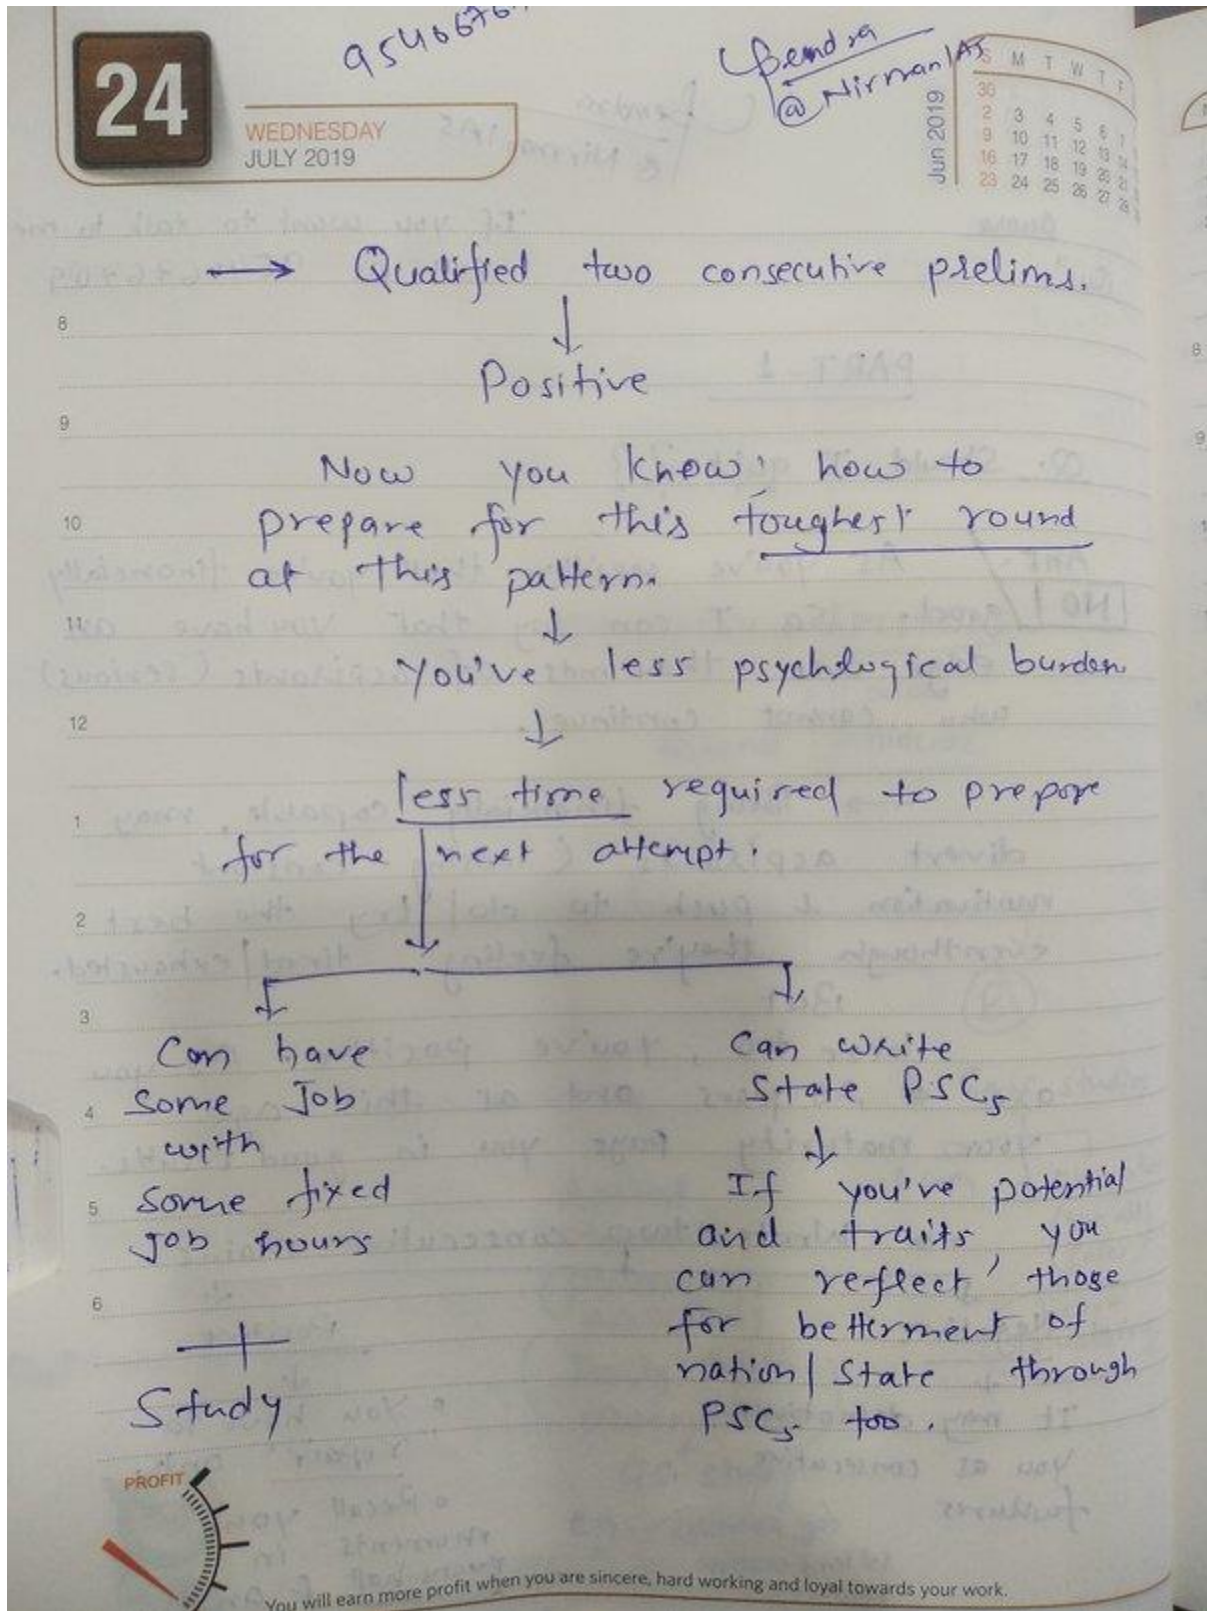 24
WEDNESDAY
JULY 2019
@NirmanIAS
Jun 2019
S M T W T F
30
2 3 4 5 6 7
9 10 11 12 13 14
16 17 18 19 20 21
23 24 25 26 27 28
→ Qualified two consecutive prelims.
8
↓
Positive
9
Now you know, how to
10
prepare for this toughest round
at this pattern.
11
↓
You've less psychological burden
12
↓
less time required to prepare
1
for the next attempt.
2
3
Can have
some Job
4
with
some fixed
5
Job hours
6
+
Study
Can write
State PSCs
↓
If you've potential
and traits, you
can reflect those
for betterment of
nation/State through
PSCs too.
PROFIT
You will earn more profit when you are sincere, hard working and loyal towards your work.